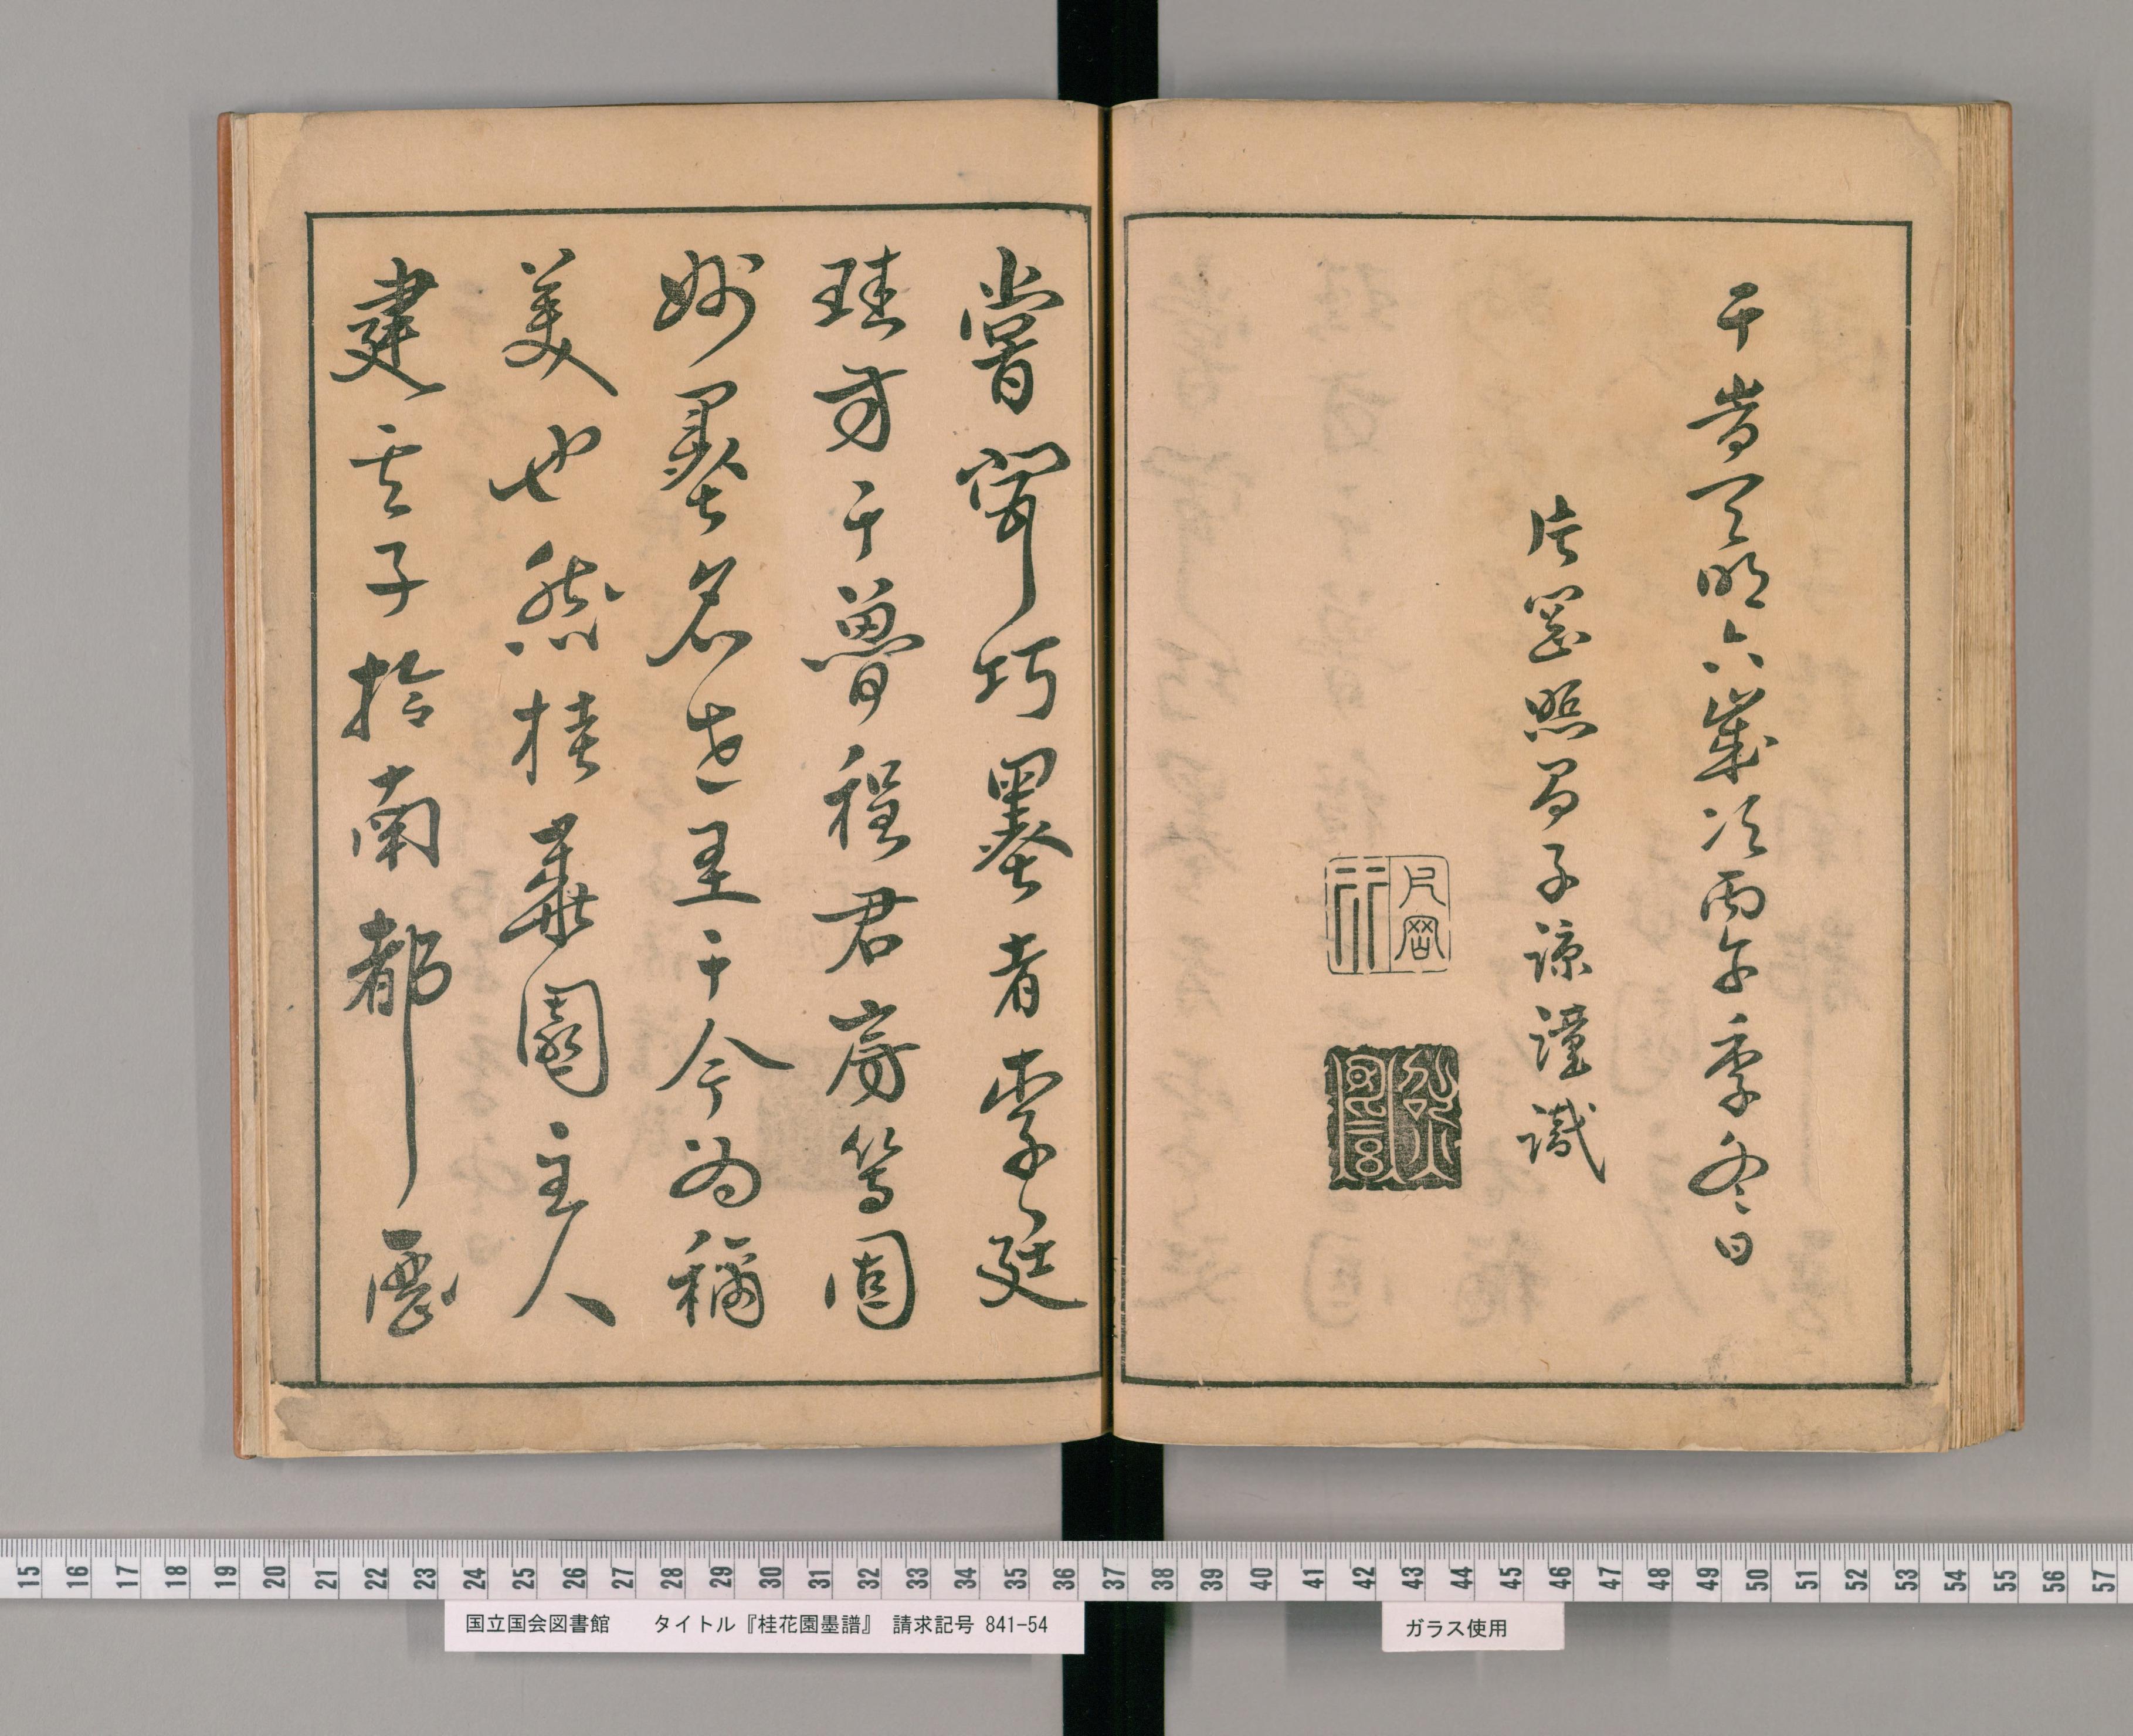 于峕天明六歳次丙午季冬日
片岡照子諒謹識
片岡行
嘗聞巧墨者李廷
珪方于魯程君房等固
妙墨名世至于今為稱
美也然桂華園主人
建子扵南都
15 16 17 18 19 20 21 22 23 24 25 26 27 28 29 30 31 32 33 34 35 36 37 38 39 40 41 42 43 44 45 46 47 48 49 50 51 52 53 54 55 56 57
国立国会図書館 タイトル『桂花園墨譜』 請求記号 841-54
ガラス使用